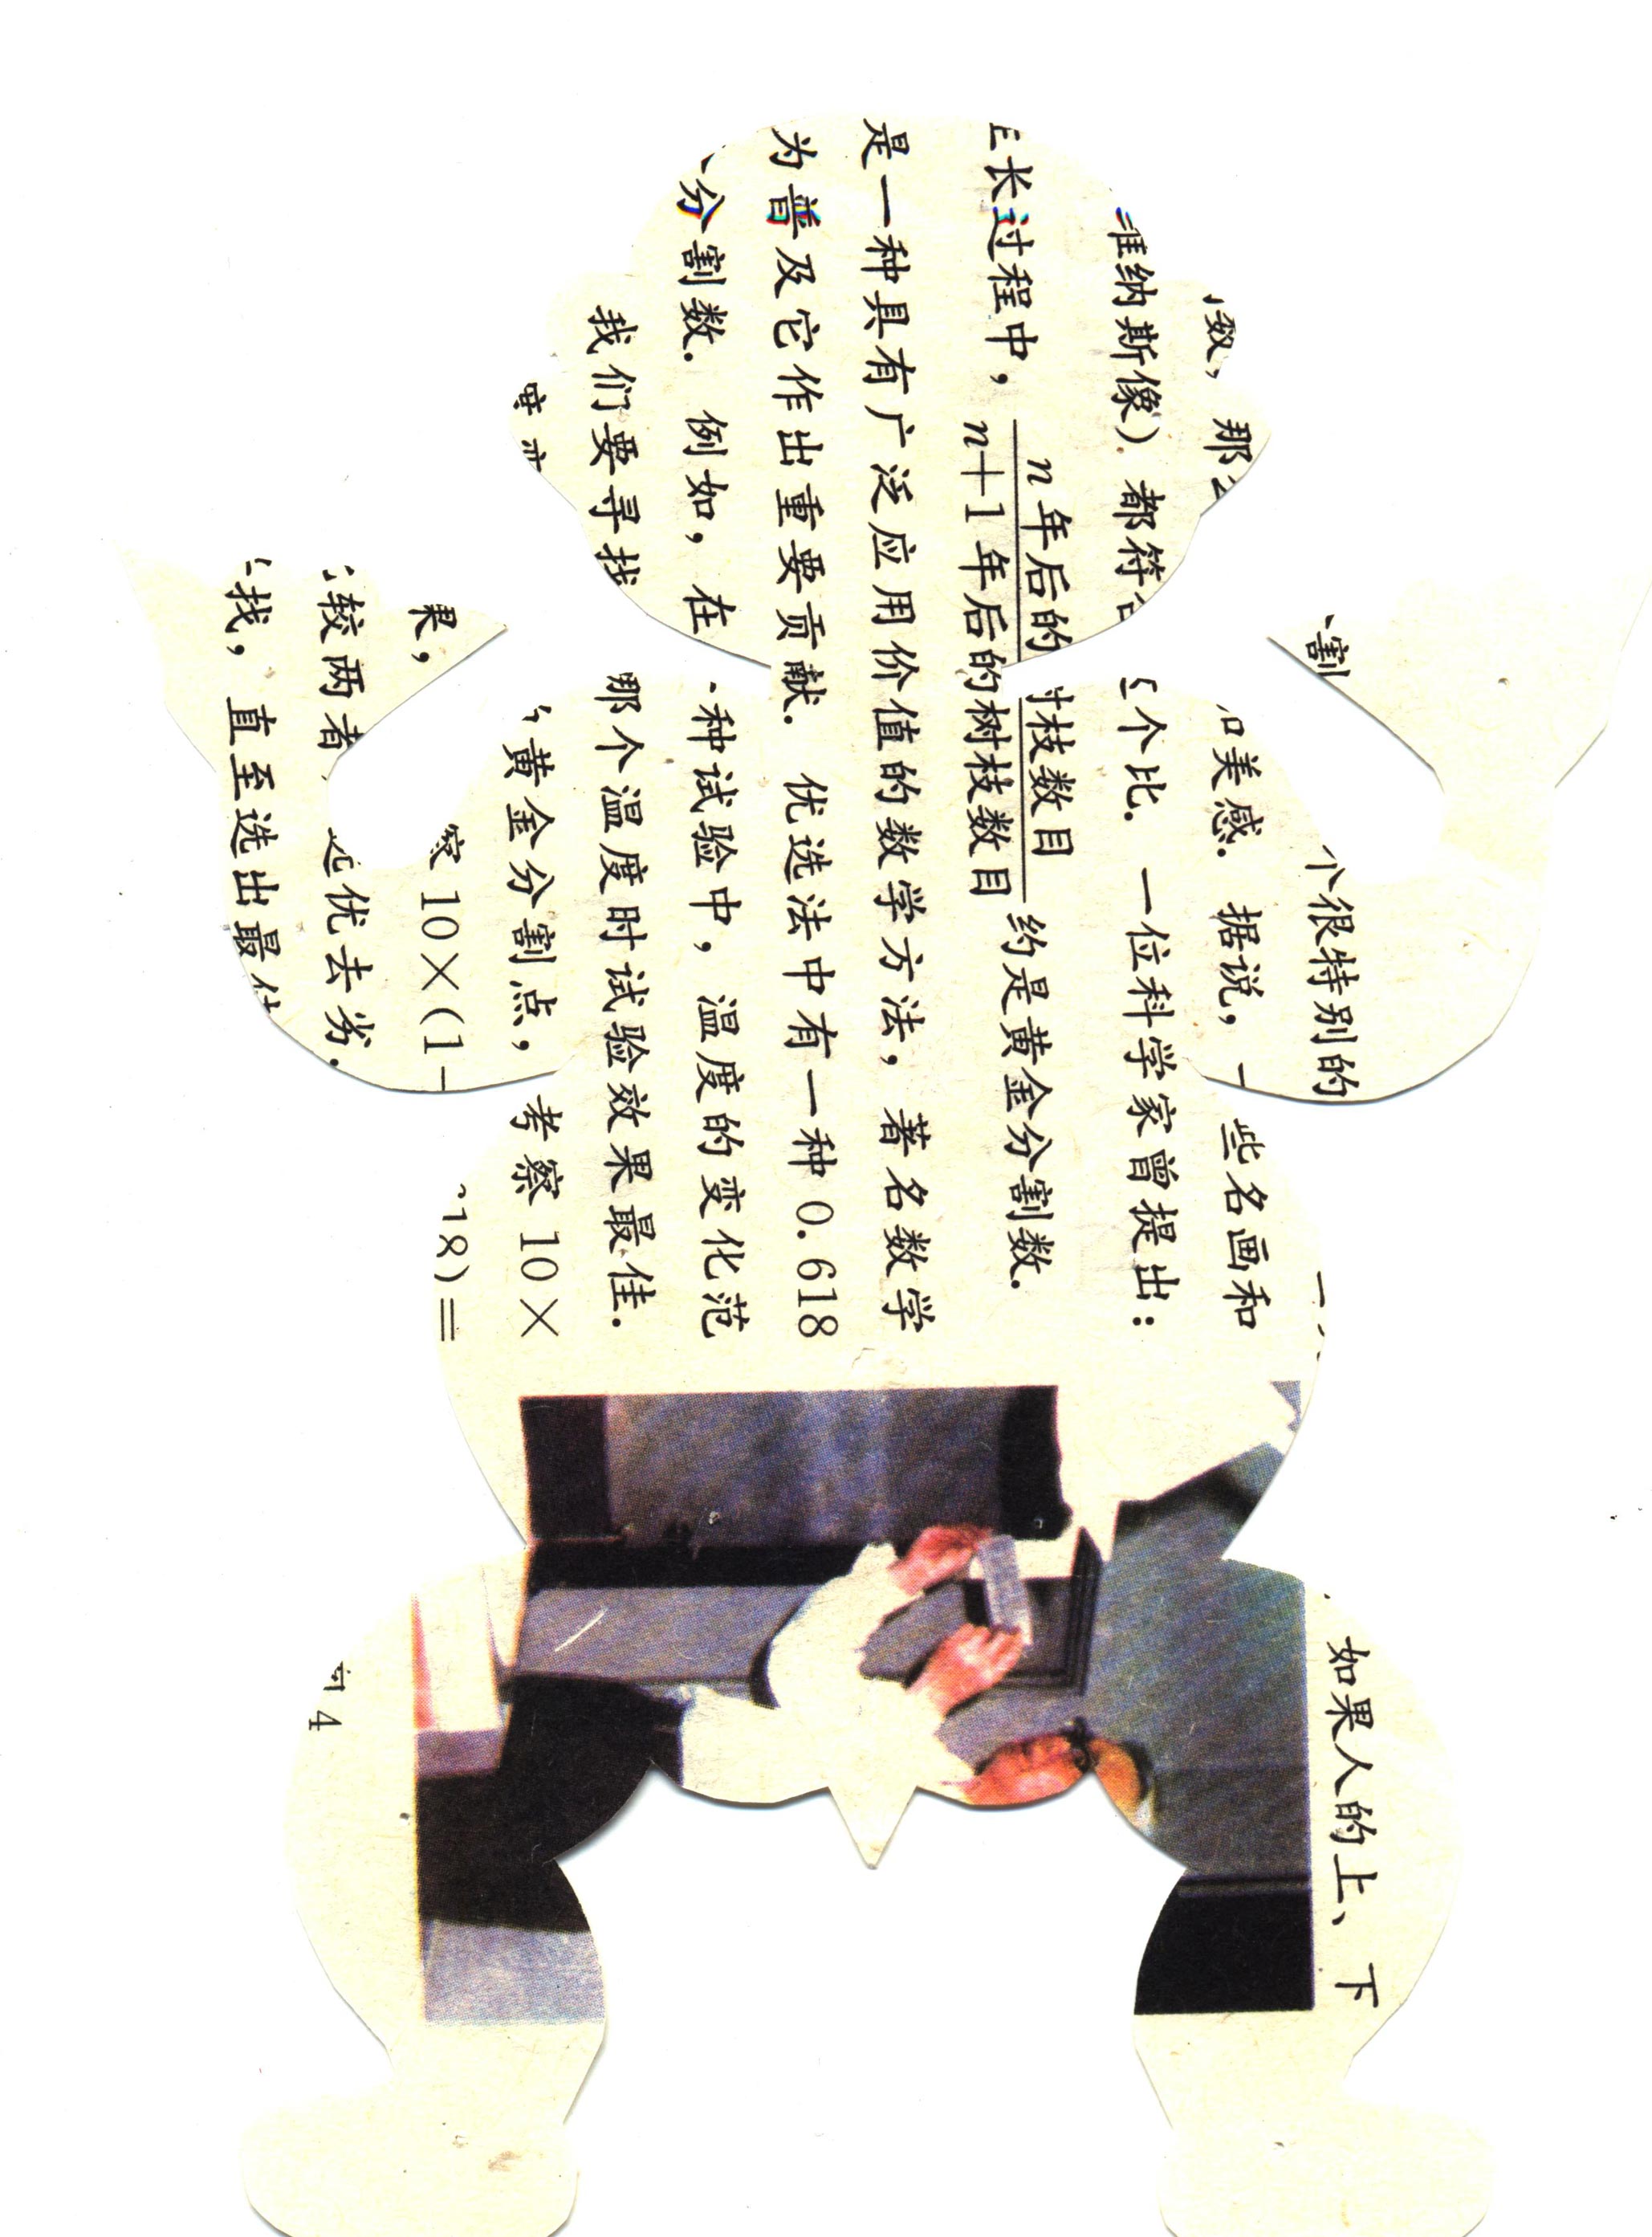 割 个很特别的 如果人的上、下
数，那 和美感．据说，一些名画和
维纳斯像）都符 个比．一位科学家曾提出：
长过程中，n年后的 枝数目
n+1年后的树枝数目 约是黄金分割数．
是一种具有广泛应用价值的数学方法，著名数学
为普及它作出重要贡献．优选法中有一种0.618
分割数．例如，在 种试验中，温度的变化范
我们要寻找 哪个温度时试验效果最佳．
黄金分割点，考察10×
果， 察10×(1- 18)=
较两者 优去劣．
找，直至选出最
4